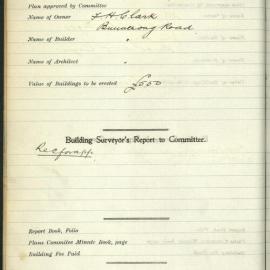 Plan approved by Committee
Name of Owner F H Clark
Road
Name of Builder "
Name of Architect "
Value of Buildings to be erected £500
Building Surveyor's Report to Committee.
Rec for app.
Report Book, Folio
Plans Commitee Minute Book, page
Building Fee Paid